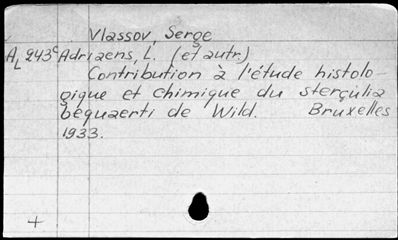 Vlassov, Serge
AL 243c Adriaens, L. (et autr.)
Contribution à l'étude histolo-
gique et chimique du sterçulia
bequaerti de Wild. Bruxelles
1933.
4